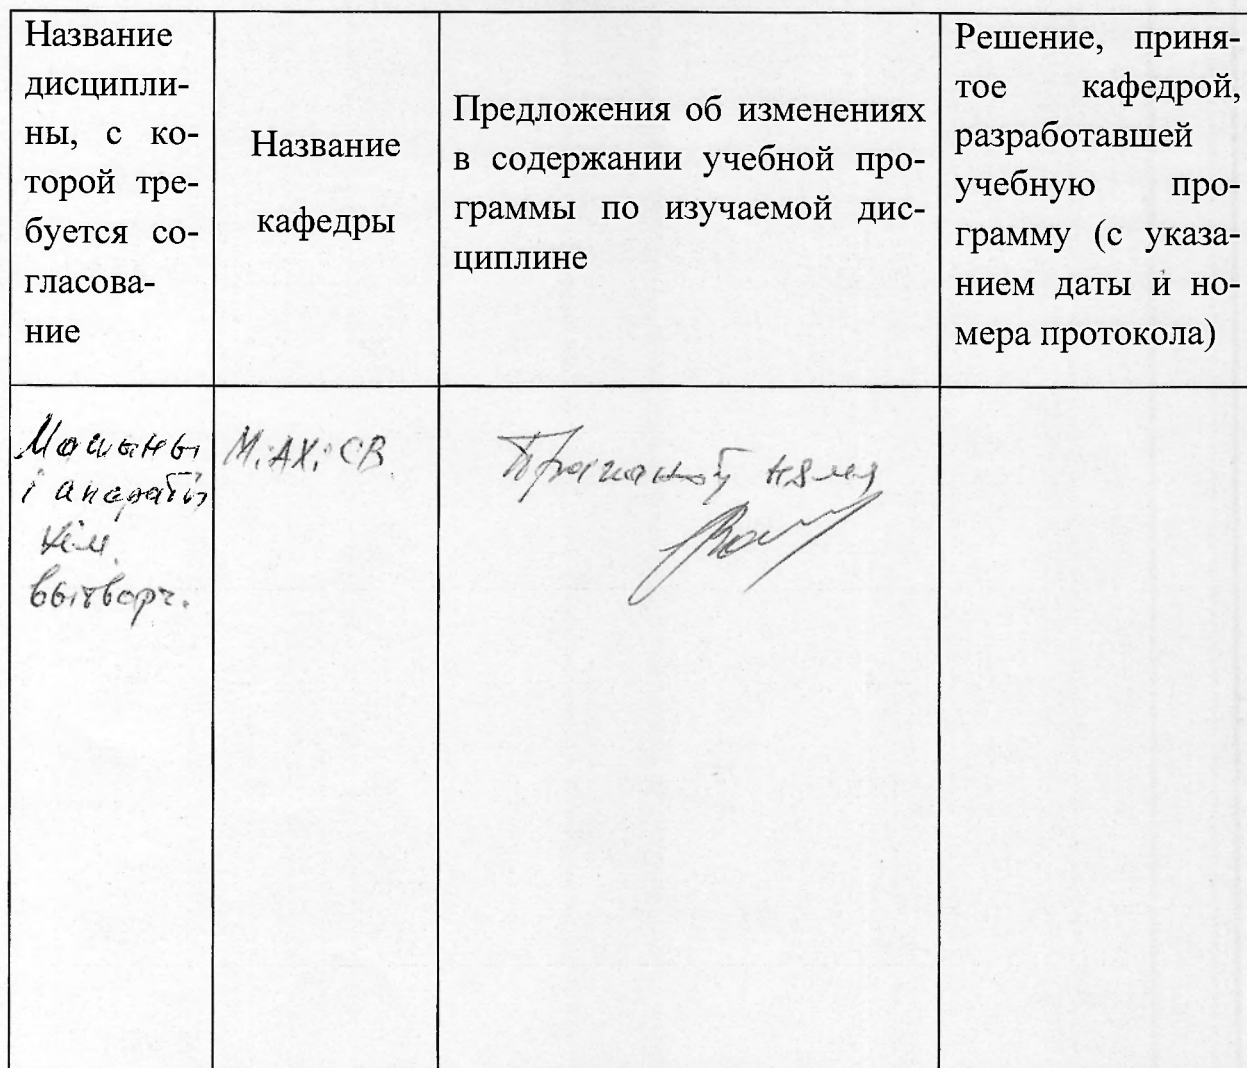 Название
дисципли-
ны, с ко-
торой тре-
буется со-
гласова-
ние
Название
кафедры
Предложения об изменениях
в содержании учебной про-
граммы по изучаемой дис-
циплине
Решение, приня-
тое кафедрой,
разработавшей
учебную про-
грамму (с указа-
нием даты и но-
мера протокола)
Машыны
і апараты
хім.
вытворч.
МіАХіСВ
няма